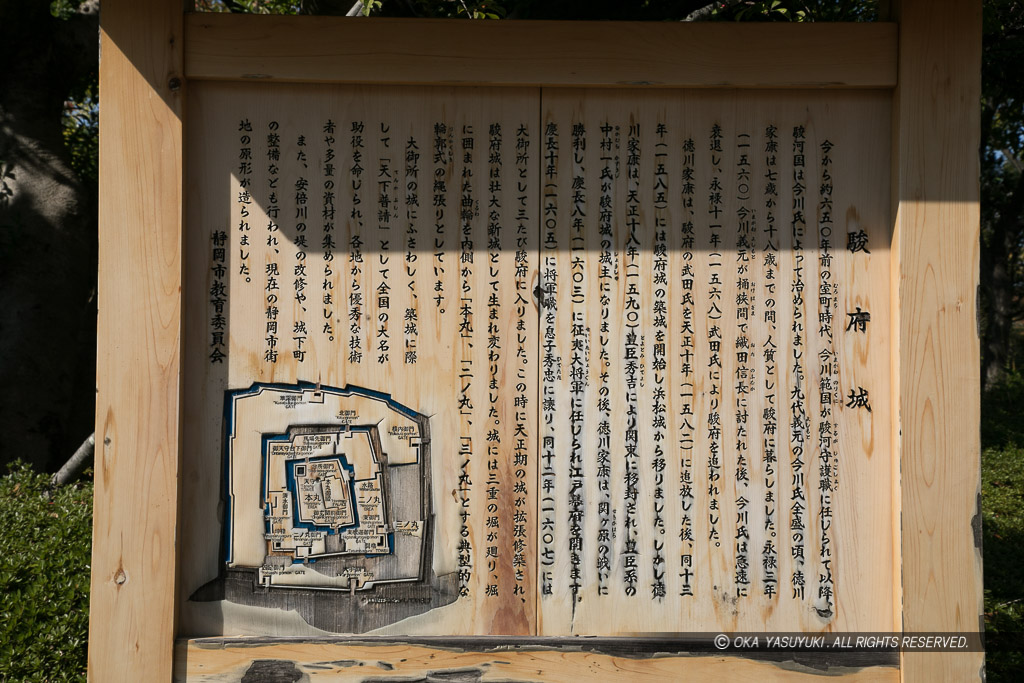 駿府城
今から約六五〇年前の室町時代、今川範国が駿河守護職に任じられて以降、
駿河国は今川氏によって治められました。九代義元の今川氏全盛の頃、徳川
家康は七歳から十八歳までの間、人質として駿府に暮らしました。永禄三年
(一五六〇)今川義元が桶狭間で織田信長に討たれた後、今川氏は急速に
衰退し、永禄十一年(一五六八)武田氏により駿府を追われました。
徳川家康は、駿府の武田氏を天正十年(一五八二)に追放した後、同十三
年(一五八五)には駿府城の築城を開始し浜松城から移りました。しかし徳
川家康は、天正十八年(一五九〇)豊臣秀吉により関東に移封され、豊臣系の
中村一氏が駿府城の城主になりました。その後、徳川家康は、関ヶ原の戦いに
勝利し、慶長八年(一六〇三)に征夷大将軍に任じられ江戸幕府を開きます。
慶長十年(一六〇五)に将軍職を息子秀忠に譲り、同十二年(一六〇七)には
大御所として三たび駿府に入りました。この時に天正期の城が拡張修築され、
駿府城は壮大な新城として生まれ変わりました。城には三重の堀が廻り、堀
に囲まれた曲輪を内側から「本丸」、「二ノ丸」、「三ノ丸」とする典型的な
輪郭式の縄張りとしています。
大御所の城にふさわしく、築城に際
して「天下普請」として全国の大名が
助役を命じられ、各地から優秀な技術
者や多量の資材が集められました。
また、安倍川の堤の改修や、城下町
の整備なども行われ、現在の静岡市街
地の原形が造られました。
静岡市教育委員会
草深御門
北御門
横内御門
馬場先御門
御天守台下御門
水路
本丸
二ノ丸
三ノ丸
清水御門
二ノ丸御門
© OKA YASUYUKI . ALL RIGHTS RESERVED.